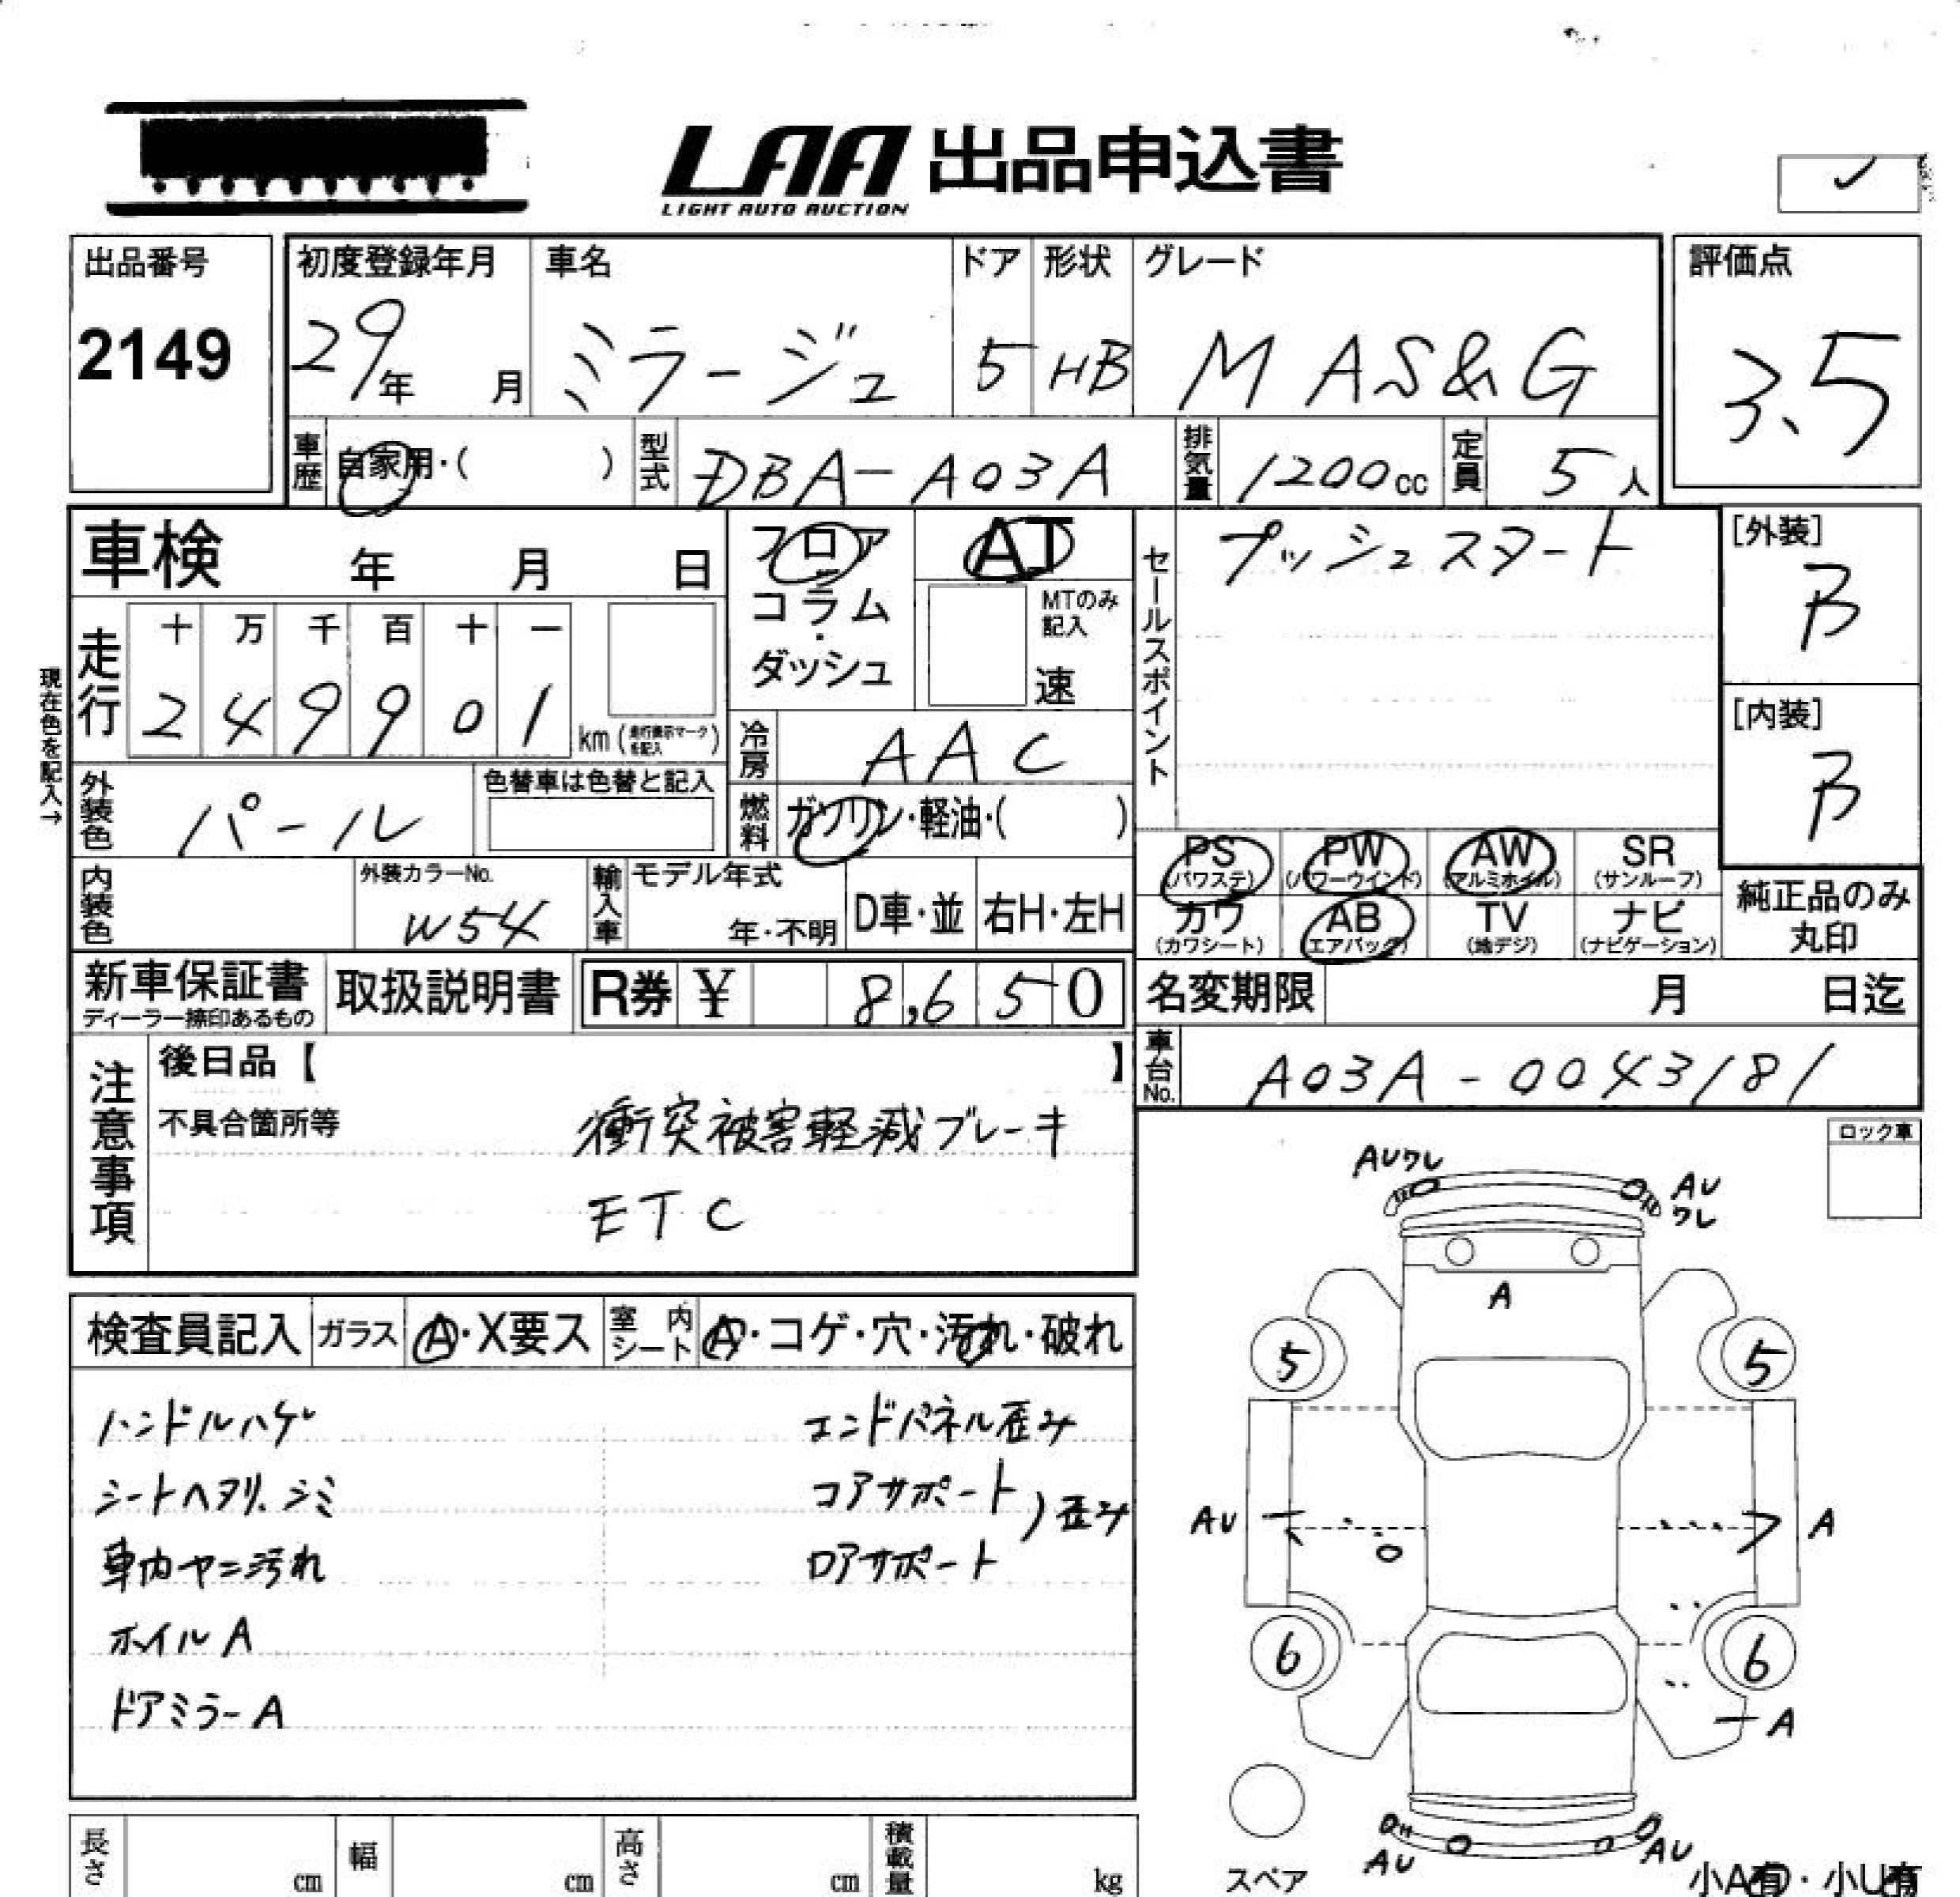 LAA 出品申込書
LIGHT AUTO AUCTION
出品番号
2149
初度登録年月
29年 月
車名
ミラージュ
ドア
5
形状
HB
グレード
M AS&G
評価点
3.5
車歴
自家用・( )
型式
DBA-A03A
排気量
1200cc
定員
5人
車検 年 月 日
フロア
コラム
・
ダッシュ
AT
MTのみ
記入
速
セールスポイント
プッシュスタート
[外装]
B
[内装]
B
現在色を記入→
走行
十 万 千 百 十 一
2 4 9 9 0 1
km(走行表示マークを記入)
冷房
AAC
外装色
パール
色替車は色替と記入
燃料
ガソリン・軽油・( )
内装色
外装カラーNo.
W54
輸入車
モデル年式
年・不明
D車・並
右H・左H
PS
(パワステ)
PW
(パワーウインド)
AW
(アルミホイル)
SR
(サンルーフ)
カワ
(カワシート)
AB
(エアバッグ)
TV
(地デジ)
ナビ
(ナビゲーション)
純正品のみ
丸印
新車保証書
ディーラー捺印あるもの
取扱説明書
R券 ¥ 8,650
名変期限 月 日迄
車台No.
A03A-0043181
注意事項
後日品【 】
不具合箇所等
衝突被害軽減ブレーキ
ETC
ロック車
検査員記入
ガラス
A・X要ス
室内シート
A・コゲ・穴・汚れ・破れ
ハンドルハゲ
シートヘタリ、シミ
車内ヤニ汚れ
ホイルA
ドアミラーA
エンドパネル歪み
コアサポート
ロアサポート
)歪み
AUワレ
AU
ワレ
A
5
5
AU
A
6
6
A
AU
AU
スペア
小A有・小U有
長さ
cm
幅
cm
高さ
cm
積載量
kg